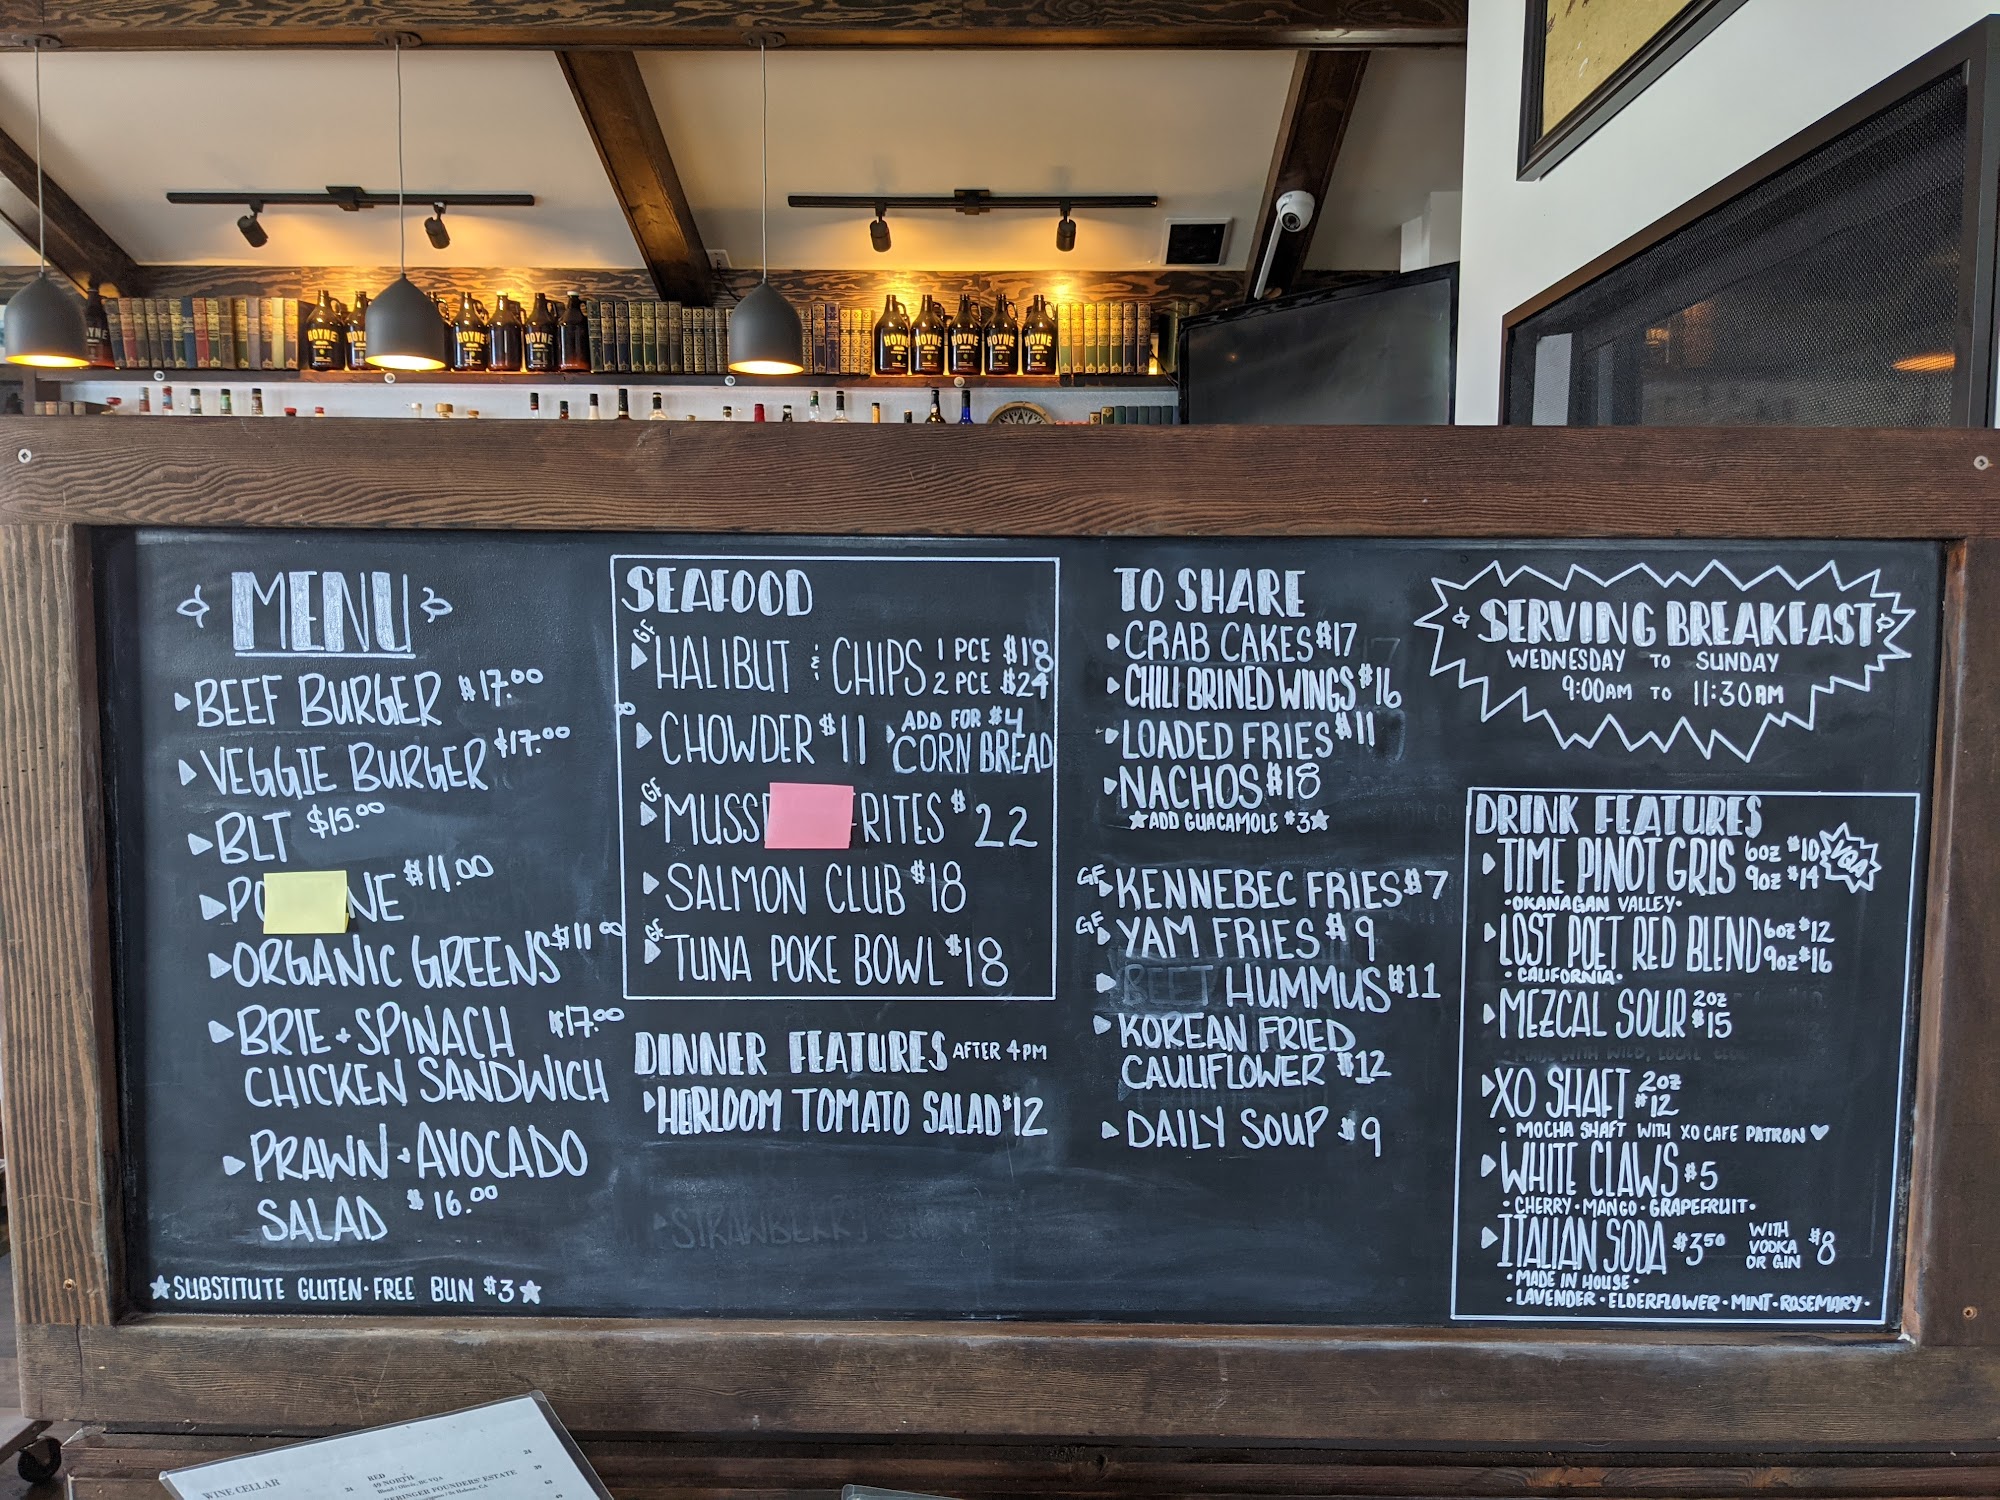 HOYNE
HOYNE
HOYNE
HOYNE
HOYNE
HOYNE
HOYNE
HOYNE
MENU
BEEF BURGER $17.00
VEGGIE BURGER $17.00
BLT $15.00
$11.00
ORGANIC GREENS $11.00
BRIE + SPINACH $17.00
CHICKEN SANDWICH
PRAWN + AVOCADO
SALAD $16.00
★SUBSTITUTE GLUTEN-FREE BUN $3★
SEAFOOD
GF HALIBUT & CHIPS 1 PCE $18
2 PCE $24
CHOWDER $11 ADD FOR $4
CORN BREAD
GF $22
SALMON CLUB $18
GF TUNA POKE BOWL $18
DINNER FEATURES AFTER 4PM
HEIRLOOM TOMATO SALAD $12
STRAWBERRY
TO SHARE
CRAB CAKES $17
CHILI BRINED WINGS $16
LOADED FRIES $11
NACHOS $18
★ADD GUACAMOLE $3★
GF KENNEBEC FRIES $7
GF YAM FRIES $9
BEET HUMMUS $11
KOREAN FRIED
CAULIFLOWER $12
DAILY SOUP $9
SERVING BREAKFAST
WEDNESDAY TO SUNDAY
9:00AM TO 11:30AM
DRINK FEATURES
TIME PINOT GRIS 6oz $10 VQA
9oz $14
•OKANAGAN VALLEY•
LOST POET RED BLEND 6oz $12
9oz $16
•CALIFORNIA•
MEZCAL SOUR 2oz
$15
MADE WITH WILD, LOCAL
XO SHAFT 2oz
$12
• MOCHA SHAFT WITH XO CAFE PATRON ♥
WHITE CLAWS $5
•CHERRY•MANGO•GRAPEFRUIT•
ITALIAN SODA $3.50 WITH VODKA OR GIN $8
•MADE IN HOUSE•
•LAVENDER•ELDERFLOWER•MINT•ROSEMARY•
WINE CELLAR
RED
49 NORTH
FOUNDERS' ESTATE